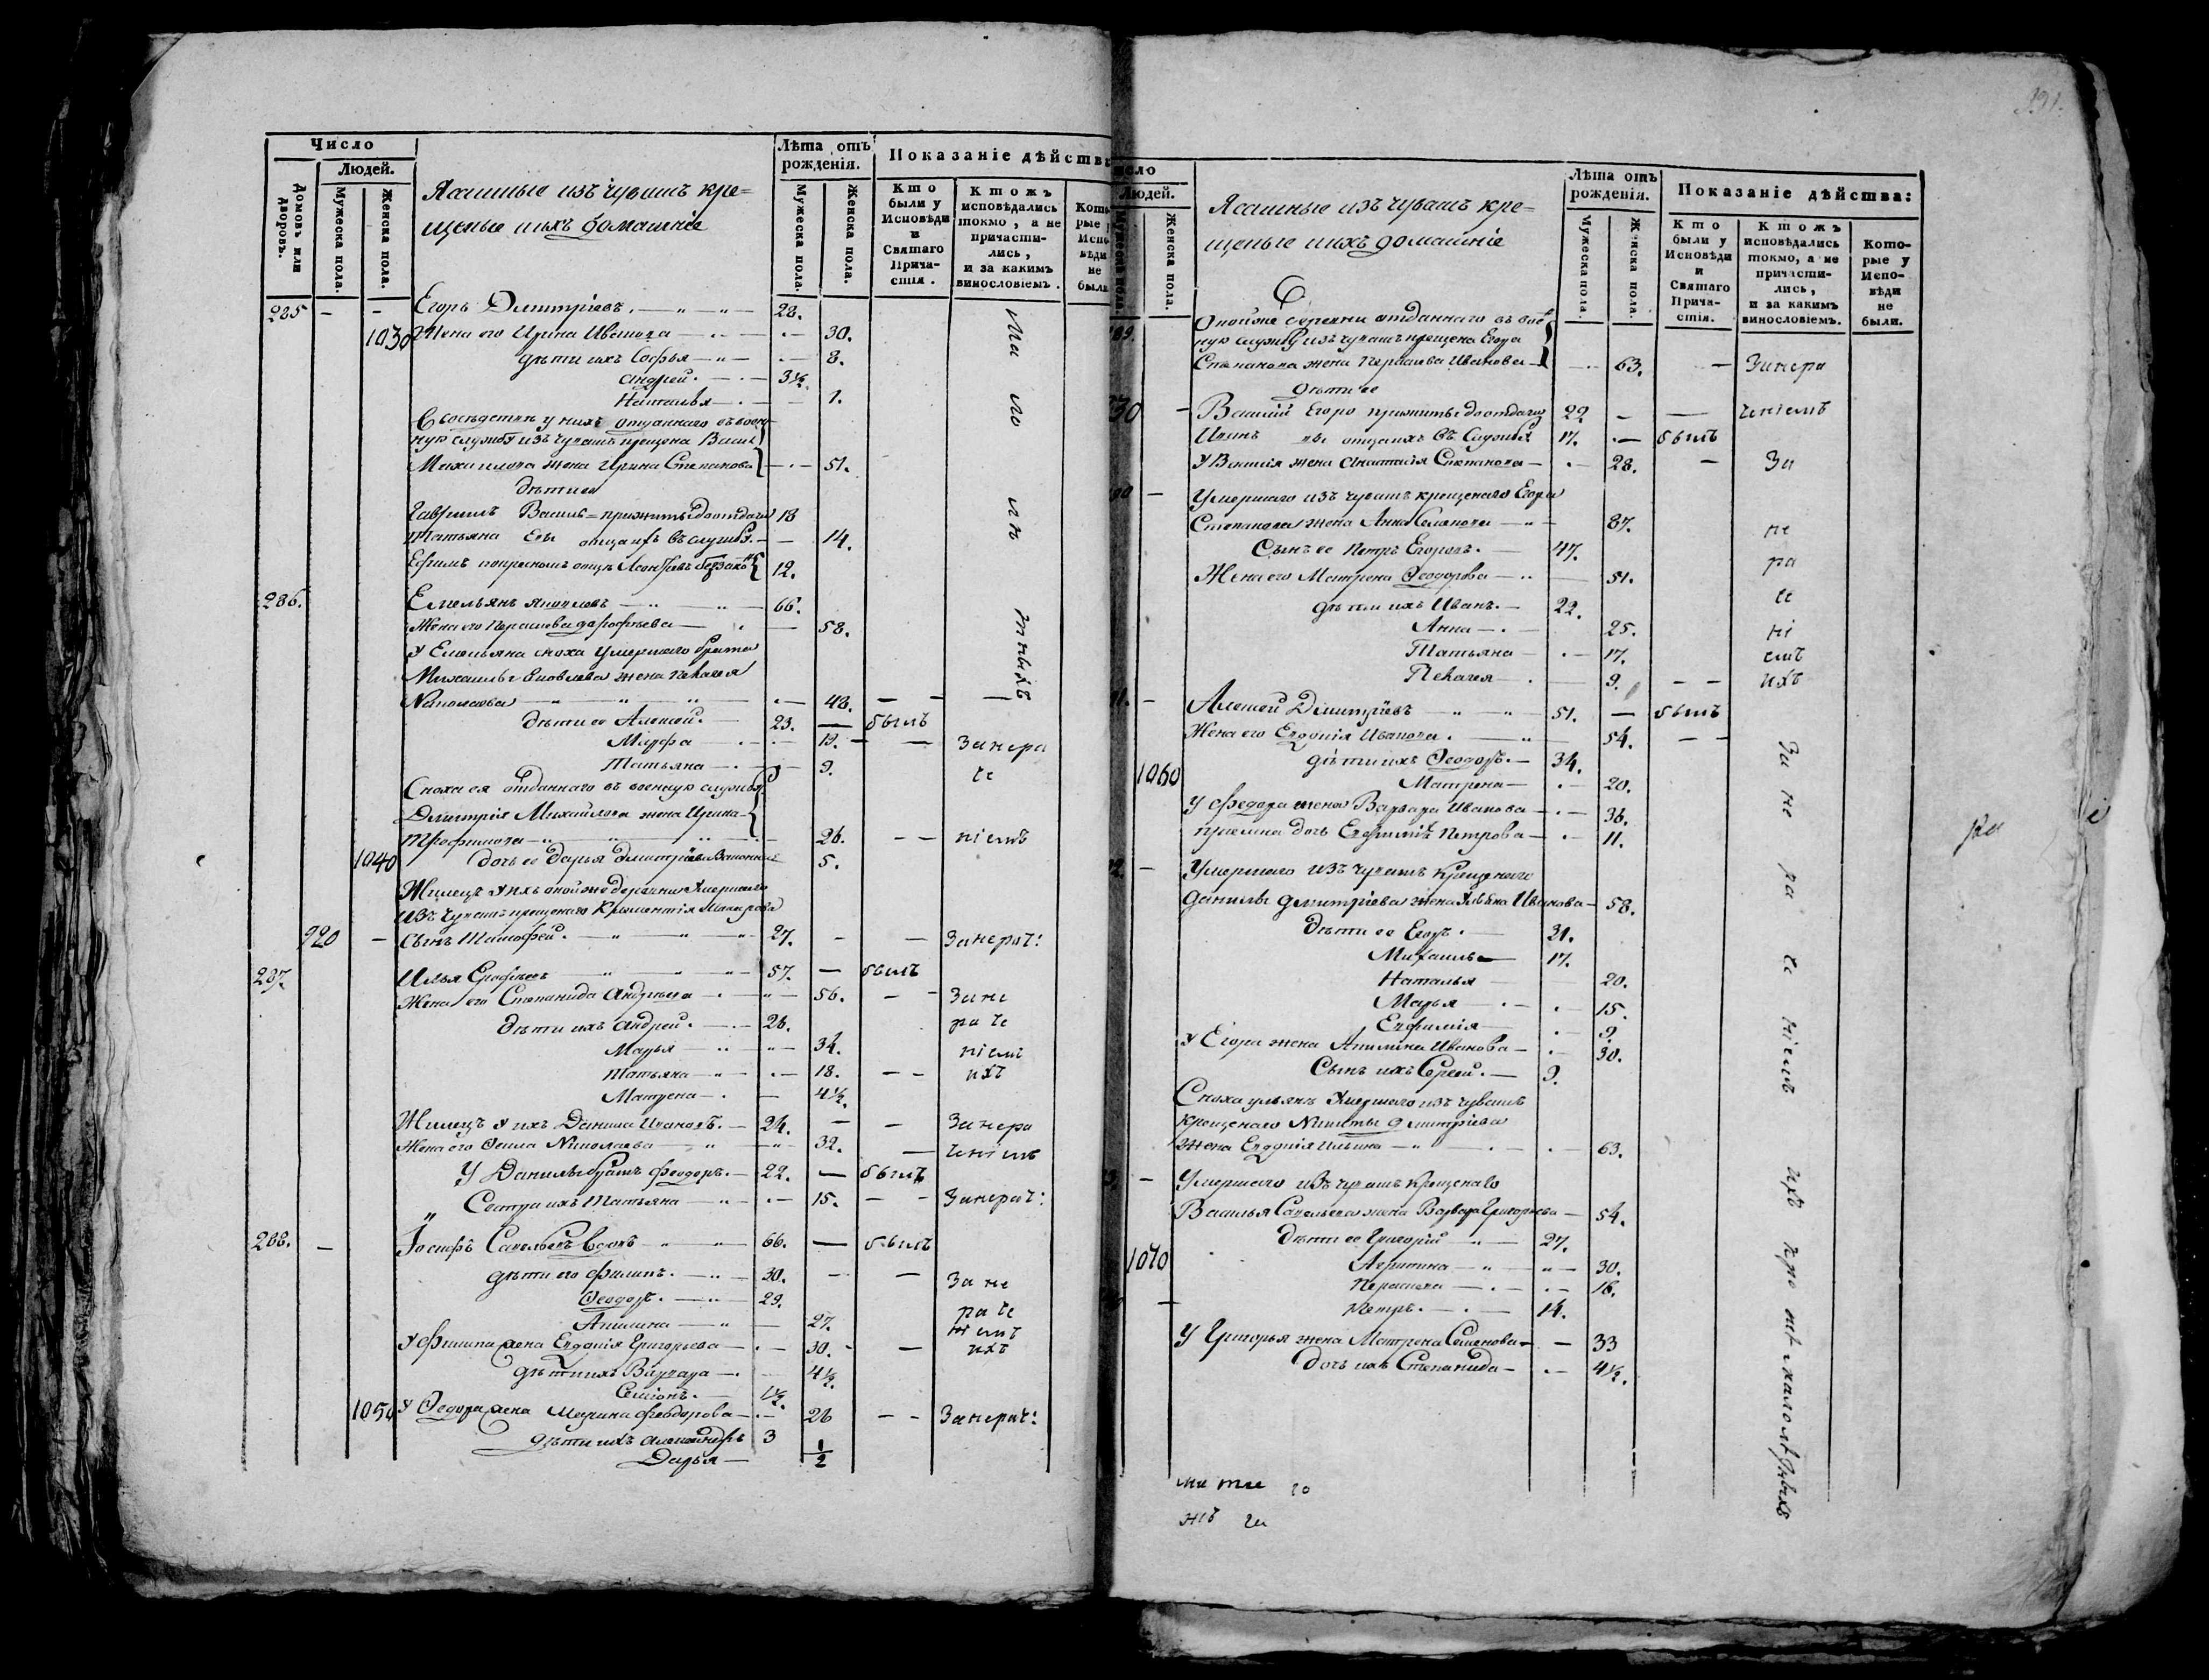 Число
Людей.
Домовъ или дворовъ.
Мужеска пола.
Женска пола.
Ясашные изъ чувашъ кре=
щеные и ихъ домашніе
Лѣта отъ рожденія.
Мужеска пола.
Женска пола.
Показаніе дѣйств
Кто были у Исповѣди и Святаго Прича- стія.
Ктожъ исповѣдались токмо, а не причасти- лись, и за какимъ винословіемъ.
285 — — Егоръ Дмитріевъ. 28.
1030 Жена его Ирина Иванова 30.
дѣти ихъ Софья 8.
Андрей. 3½
Наталья 1.
ную службу изъ чувашъ крещена Васил
Михайлова жена Ирина Степанова 51.
дѣти ея
Гаврилъ Васил= прижитые до отдачи 18
Татьяна отца ихъ въ службу. 14.
Ефимъ 12.
286. Емельянъ Яковлевъ 66.
Жена его Парасковья Дорофѣева 58.
У Емельяна сноха умершаго брата
Михаила Яковлева жена Пелагея
Николаева 48.
дѣти ее Алексей. 23. — былъ
Марфа 12. — За нера
Татьяна 9. че
Сноха ея отданнаго въ военную службу
Дмитрія Михайлова жена Ирина
Трофимова 26. — — ніемъ
1040 дочь ее Дарья Дмитріева 5.
Жилецъ у ихъ оной же деревни умершаго
изъ чувашъ крещенаго
920 — сынъ Тимофей. 27. — — За нерач:
287. Илья Ерофѣевъ 57. — былъ
Жена его Степанида Андреева 56. — — За не
дѣти ихъ Андрей. 26. ра че
Марья 34. ніемъ
Татьяна 18. — — ихъ
Матрена 4½
Жилецъ у ихъ Данила Ивановъ. 24. — — За нера
Жена его Фекла Николаева 32. — ченіемъ
У Данилы братъ Феодоръ. 22. — былъ
Сестра ихъ Татьяна 15. — — За нерач:
288. — Іосифъ Савельевъ вдовъ 66. — былъ
дѣти его Филипъ. 30. — — За не
Ѳеодоръ. 29. ра че
Акилина 27. ніемъ
У Филипа жена Евдокія Григорьева 30. — — ихъ
дѣти ихъ Варвара 4½
Семіонъ. 1½
1050 У Ѳедора жена Марина Феодорова 26 — — За нерач:
дѣти ихъ 3
Дарья ½
Ма ло лѣ тныхъ
Людей.
Женска пола.
Ясашные изъ чувашъ кре=
щеные и ихъ домашніе
Лѣта отъ рожденія.
Мужеска пола.
Женска пола.
Показаніе дѣйства:
Кто были у Исповѣди и Святаго Прича- стія.
Ктожъ исповѣдались токмо, а не причасти- лись, и за какимъ винословіемъ.
Кото- рые у Испо- вѣди не были.
Оной же деревни отданнаго въ воен
ную службу изъ чувашъ крещена Егора
Степанова жена Парасковья Иванова 63. — За нера
дѣти ее
Василій Егоро прижитые до отдачи 22 — — ченіемъ
Иванъ вы отца ихъ въ службу 17. — былъ
У Василія жена Анастасія Степанова 28. — За
Умершаго изъ чувашъ крещенаго Егора
Степанова жена Анна 87. не
Сынъ ее Петръ Егоровъ. 47.
Жена его Матрена Ѳеодорова 51. ра
дѣти ихъ Иванъ. 22. че
Анна 25. ні
Татьяна 17. емъ
Пелагея 9. — — ихъ
Алексей Дмитріевъ 51. — былъ
Жена его Евдокія Иванова. 54. — —
дѣти ихъ Ѳеодоръ. 34.
1060 Матрена 20.
У Федора жена Варвара Иванова 36.
Приемна дочь Евфимія Петрова 11.
Умершаго изъ чувашъ крещенаго
Данилы Дмитріева жена Ульяна Иванова 58.
дѣти ее Егоръ. 31.
Михаила 17.
Наталья 20.
Марья 15.
Евфимія 9.
У Егора жена Акилина Иванова 30.
Сынъ ихъ Сергей. 9.
Сноха Ульянѣ умершаго изъ чувашъ
крещенаго Никиты Дмитріева
жена Евдокія Ильина 63.
Умершаго изъ чувашъ крещенаго
Василья Савельева жена Варвара Григорьева 54.
дѣти ее Григорій 27.
1070 30.
Параскева 16.
Петръ. 14.
У Григорья жена Матрена Семенова 33
дочь ихъ Степанида 4½.
За не ра че ніемъ ихъ кро мѣ малолѣтныхъ
ра